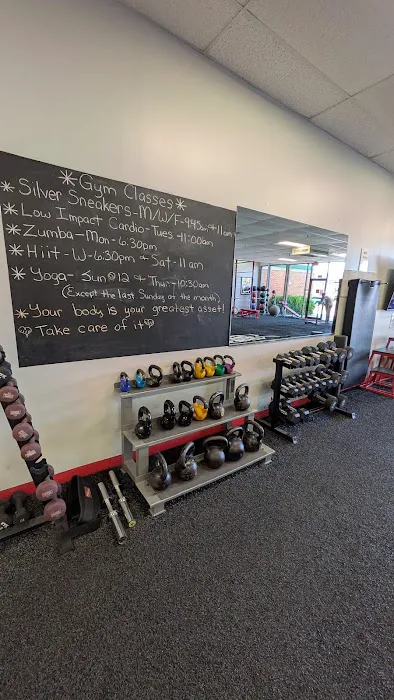 *Gym Classes*
*Silver Sneakers-M/W/F-9:45am + 11am
*Low Impact Cardio-Tues - 11:00am
*Zumba-Mon-6:30pm
*Hiit-W-6:30pm + Sat-11am
*Yoga-Sun@12 + Thur-10:30am
(Except the last Sunday of the month)
*Your body is your greatest asset!
♡Take care of it♡